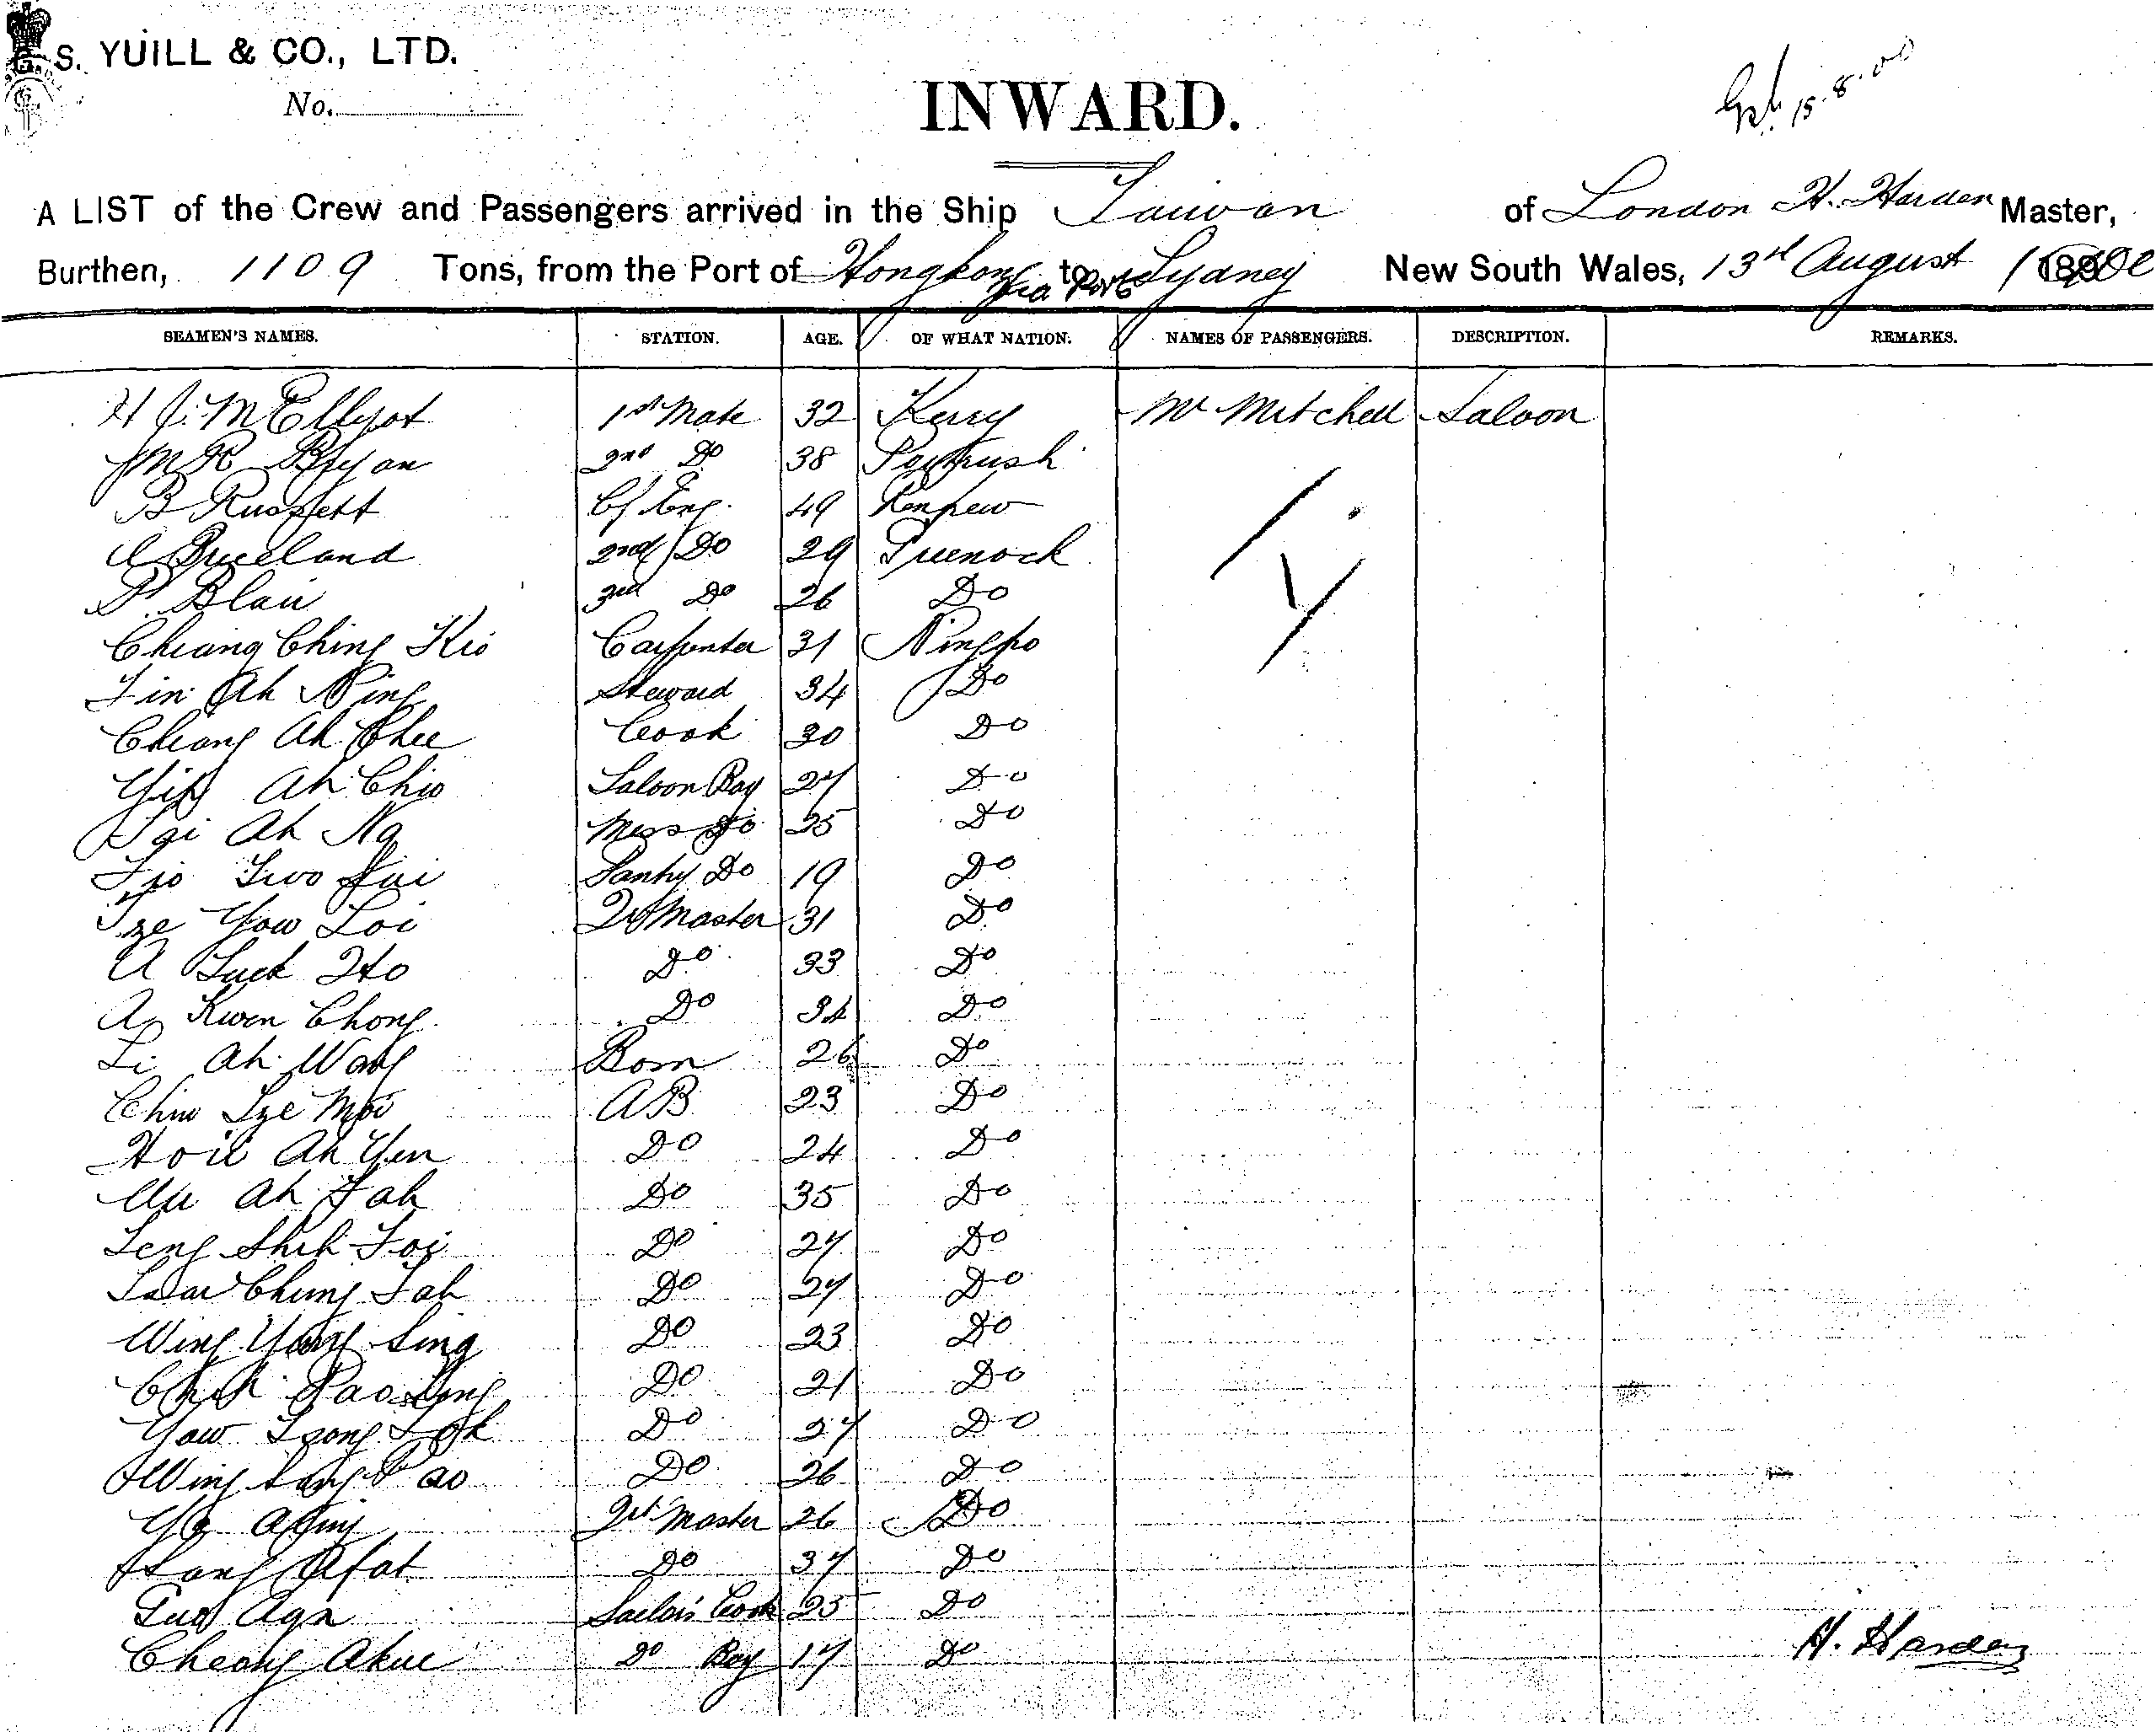 G. S. YUILL & CO., LTD.
No.
INWARD.
15.8.00
A LIST of the Crew and Passengers arrived in the Ship Taiwan of London H. Harden Master,
Burthen, 1109 Tons, from the Port of Hongkong via Ports to Sydney New South Wales, 13th August 1900
SEAMEN'S NAMES. STATION. AGE. OF WHAT NATION. NAMES OF PASSENGERS. DESCRIPTION. REMARKS.
H J. M Ellyot 1st Mate 32 Kerry Mr Mitchell Saloon
M R Bryan 2nd Do 38 Portrush
B Russett Cf Eng. 49 Renfrew
Bruceland 2nd Do 29 Greenock
P. Blair 3rd Do 26 Do
Cheang Ching Kio Carpenter 31 Ningpo
Ah Ning Steward 34 Do
Cheong Ah Chee Cook 30 Do
Yip Ah Chio Saloon Boy 27 Do
Ah Na Mess Do 25 Do
Pantry Do 19 Do
Tze Yow Loi Qr Master 31 Do
A Luck Ho Do 33 Do
A Kwen Chong Do 34 Do
Li Ah Wong Bosn 26 Do
Chiu Sze Moi AB 23 Do
Ah Yen Do 24 Do
Ah Fah Do 35 Do
Leng Shih Foi Do 27 Do
Chung Fah Do 27 Do
Wing Yung Sing Do 23 Do
Chih Pao Do 21 Do
Yaw Do 27 Do
Wing Sung Pao Do 26 Do
Qr Master 26 Do
Afat Do 37 Do
Sailors Cook 25 Do
Cheong Akue Do Boy 17 Do
H. Harden